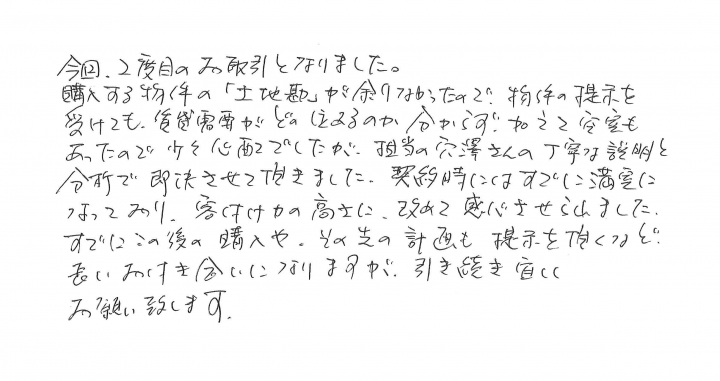 今回、2度目のお取引となりました。
購入する物件の「土地勘」が余りなかったので、物件の提示を
受けても、賃貸需要がどの位あるのか分からず、加えて空室も
あったので少々心配でしたが、担当の穴澤さんの丁寧な説明と
分析で即決させて頂きました。契約時にはすでに満室に
なっており、客付け力の高さに、改めて感心させられました。
すでにこの後の購入や、その先の計画も提示を頂くなど、
長いお付き合いになりますが、引き続き宜しく
お願い致します。